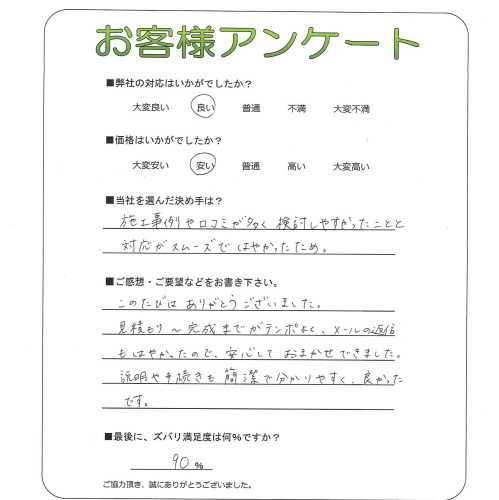 お客様アンケート
■弊社の対応はいかがでしたか？
大変良い 良い 普通 不満 大変不満
■価格はいかがでしたか？
大変安い 安い 普通 高い 大変高い
■当社を選んだ決め手は？
施工事例や口コミが多く検討しやすかったことと
対応がスムーズではやかったため。
■ご感想・ご要望などをお書き下さい。
このたびはありがとうございました。
見積もり～完成までがテンポよく、メールの返信
もはやかったので、安心しておまかせできました。
説明や手続きも簡潔で分かりやすく、良かった
です。
■最後に、ズバリ満足度は何%ですか？
90 %
ご協力頂き、誠にありがとうございました。